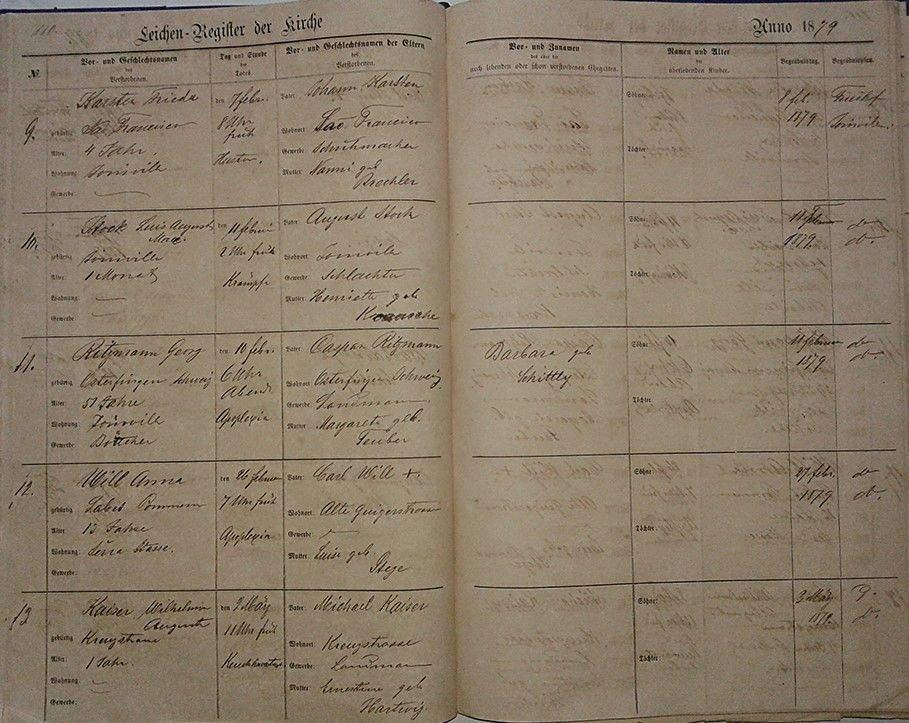 Leichen-Register der Kirche
Anno 1879
№
Vor- und Geschlechtsnamen
des
Verstorbenen.
Tag und Stunde
des
Todes.
Vor- und Geschlechtsnamen der Eltern
des
Verstorbenen.
Vor- und Zunamen
noch lebenden oder schon verstorbenen Ehegatten.
Namen und Alter
der
überlebenden Kinder.
Begräbnißtag.
9.
Karsten Frieda
gebürtig São Francisco
Alter: 4 Jahr.
Wohnung: Joinville
Gewerbe: —
den 7 febr.
8 Uhr
früh
Husten.
Vater: Johann Karsten
Wohnort: São Francisco
Gewerbe: Schuhmacher
Mutter: Nanni geb
Söhne:
Töchter:
8 feb.
1879
Joinville.
10.
Stock Luis August
Max
gebürtig Joinville
Alter: 1 Monat
Wohnung: —
Gewerbe: —
den 11 februar
2 Uhr früh
Krämpfe
Vater: August Stock
Wohnort: Joinville
Gewerbe: Schlachter
Mutter: Henriette geb
Söhne:
Töchter:
1879.
do
do.
11.
Ritzmann Georg
gebürtig Osterfingen Schweiz
Alter: 51 Jahre
Wohnung: Joinville
Gewerbe: Böttcher
den 10 febr.
6 Uhr
Abends
Apoplexia
Vater: Caspar Ritzmann
Wohnort: Osterfingen Schweiz
Gewerbe: Landmann
Mutter: Margarete geb.
Teuber
Barbara geb
Schittly
Söhne
Töchter:
11 februar
1879.
do
do.
12.
Will Anna
gebürtig: Labes Pommern
Alter 12 Jahre
Wohnung:
Gewerbe:
den 26 februar
7 Uhr früh
Apoplexia
Vater: Carl Will +.
Wohnort:
Gewerbe —
Mutter: Luise geb.
Stege
Söhne
Töchter:
27 febr.
1879
do
do.
13
Kaiser Wilhelm
August
gebürtig Kreuzstrasse
Alter: 1 Jahr.
Wohnung: —
Gewerbe:
den 2 März
11 Uhr früh
Keuchhusten
Vater: Michael Kaiser
Wohnort: Kreuzstrasse
Gewerbe: Landmann
Mutter: Ernestine geb
Hartwig.
Söhne:
Töchter:
3 März
1879.
do.